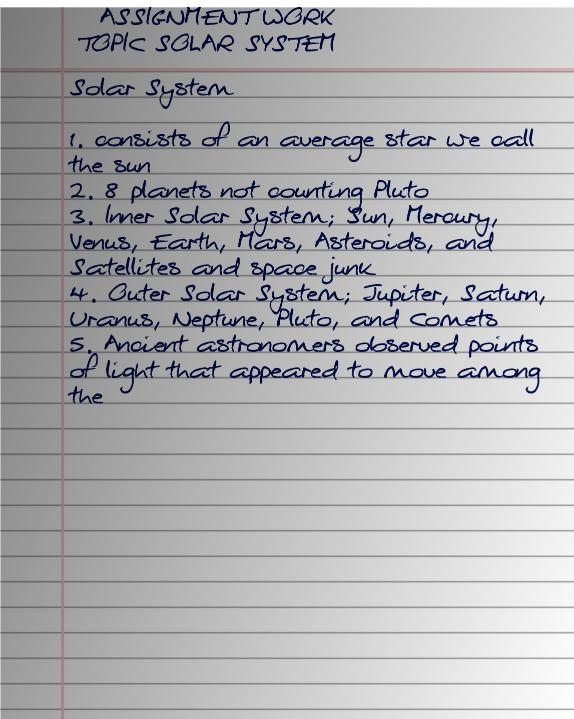 ASSIGNMENT WORK
TOPIC SOLAR SYSTEM
Solar System
1. consists of an average star we call
the sun
2. 8 planets not counting Pluto
3. Inner Solar System; Sun, Mercury,
Venus, Earth, Mars, Asteroids, and
Satellites and space junk
4. Outer Solar System; Jupiter, Saturn,
Uranus, Neptune, Pluto, and Comets
5. Ancient astronomers observed points
of light that appeared to move among
the